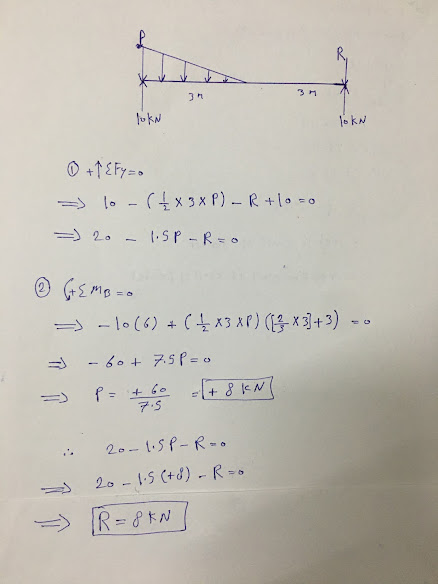 P
R
3m
3m
10KN
10KN
① +↑ΣFy=0
⇒ 10 - (1/2 × 3 × P) - R + 10 = 0
⇒ 20 - 1.5P - R = 0
② (+ΣMB=0
⇒ -10(6) + (1/2 × 3 × P) ([2/3 × 3]+3) = 0
⇒ -60 + 7.5P = 0
⇒ P = +60/7.5 = +8KN
∴ 20 - 1.5P - R = 0
⇒ 20 - 1.5(+8) - R = 0
⇒ R = 8KN